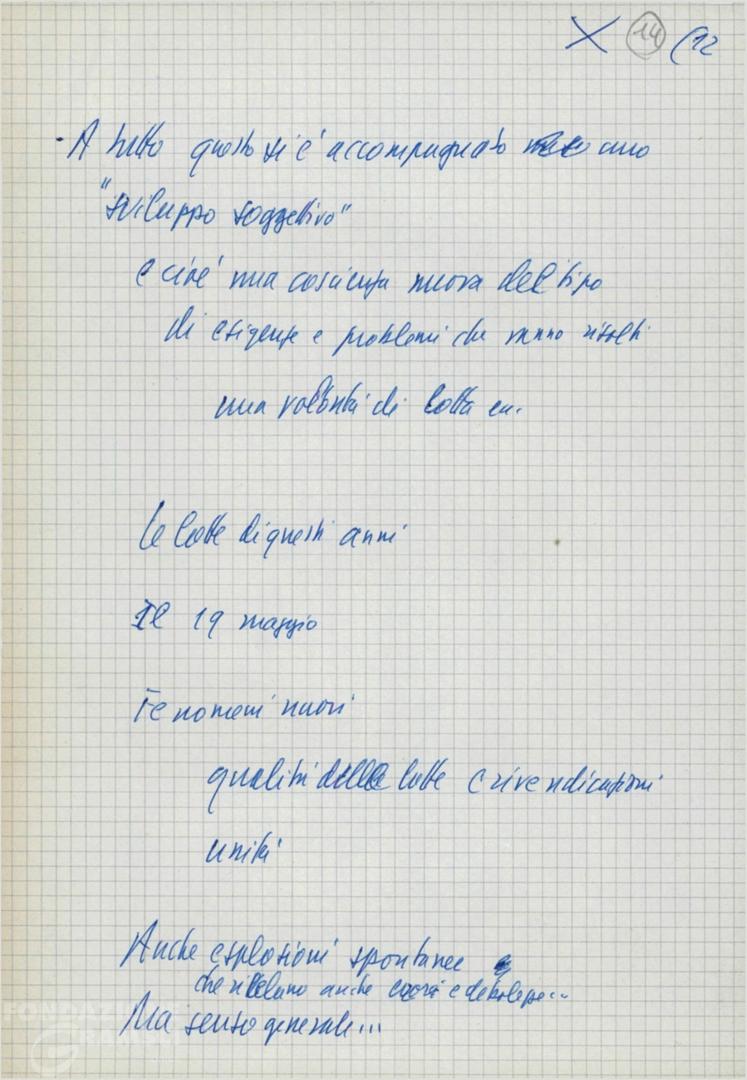 X 14 (12
- A tutto questo si è accompagnato uno
"sviluppo soggettivo"
e cioè una coscienza nuova del tipo
di esigenze e problemi che vanno risolti
una volontà di lotta ecc.
Le lotte di questi anni
Il 19 maggio
Fenomeni nuovi
qualità delle lotte e rivendicazioni
unità
Anche esplosioni spontanee
che rivelano anche e debolezze...
Ma senso generale...
FONDAZIONE
GRAMSCI